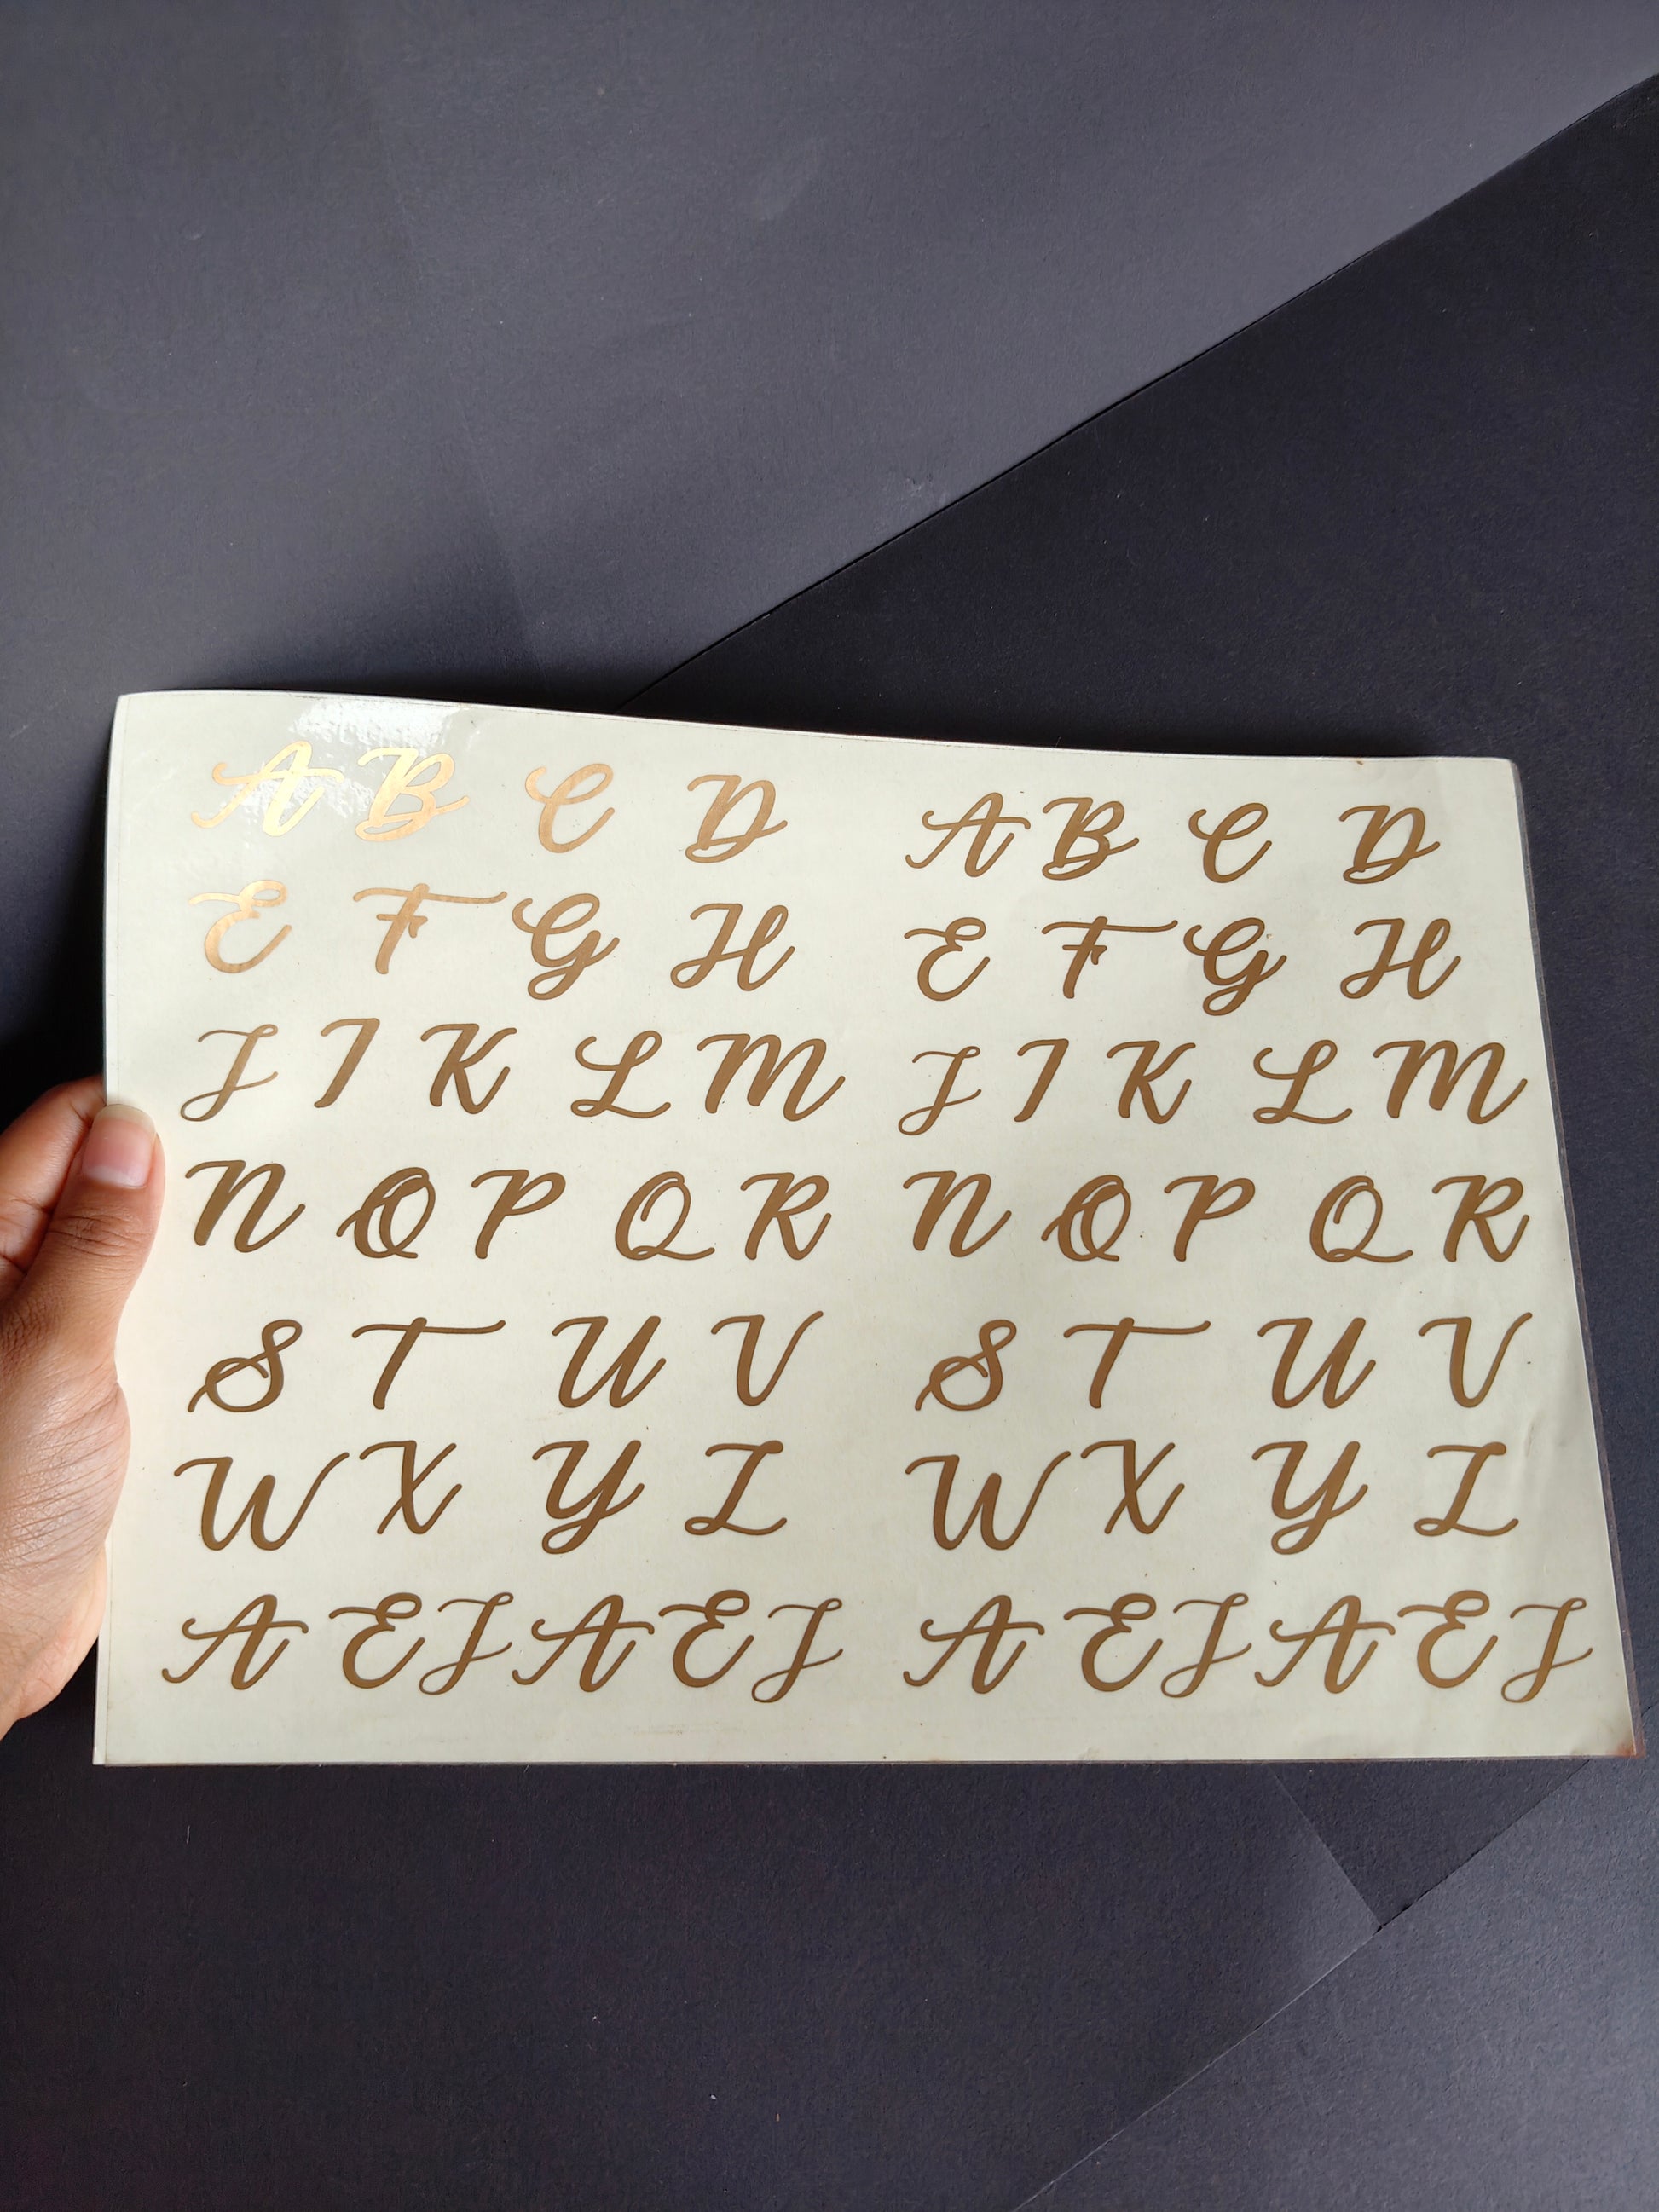 A B C D A B C D
E F G H E F G H
J I K L M J I K L M
N O P Q R N O P Q R
S T U V S T U V
W X Y Z W X Y Z
A E J A E J A E J A E J